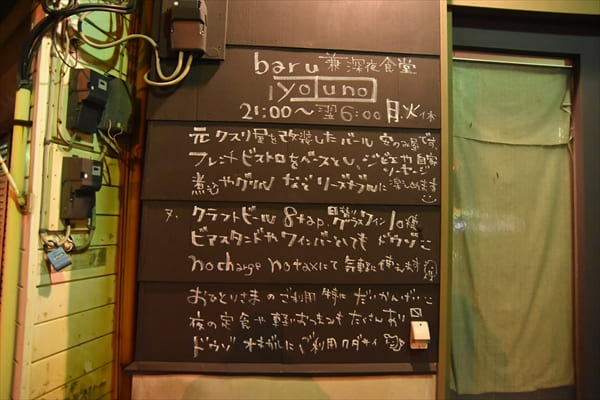 baru 兼 深夜食堂
iyoluno
21:00〜翌6:00 月.火休
元クスリ屋を改装したバール 空つみ屋です.
フレンチビストロをベースとし、ジビエや自家ソーセージ
煮込やグリル などリーズナブルに楽しめます
クラフトビール 8tap 日替りグラスワイン10種
ビアスタンドやワインバーとしても ドウゾ
no charge no taxにて 気軽に使えます
おひとりさまのご利用 特に だいかんげい
夜の定食や軽いおつまみも たくさんあり
ドウゾ オキガルにご利用クダサイ